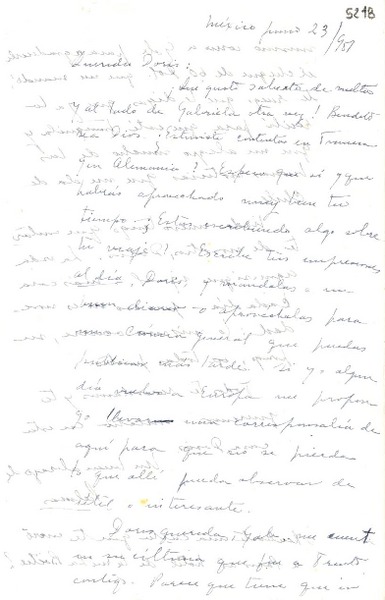 5218
México Junio 23/951
Querida Doris:
Qué gusto saberte de vuelta
y al lado de Gabriela otra vez! Bendito
sea Dios. Estuviste contenta en Francia
y en Alemania? Espero que sí y que
habrás aprovechado muy bien tu
tiempo. Estás escribiendo algo sobre
tu viaje? Escribe tus impresiones
al día, Doris, y mándalas a un
diario o aprovéchalas para
una general que puedas
más tarde. Si yo algún
día vuelvo a Europa me propon-
go llevar una corresponsalía de
aquí para que no se pierda
lo que allí pueda observar de
útil o interesante.
Doris querida, Gaba me cuenta
en su última que fue a Trento
contigo. Parece que tiene que ir